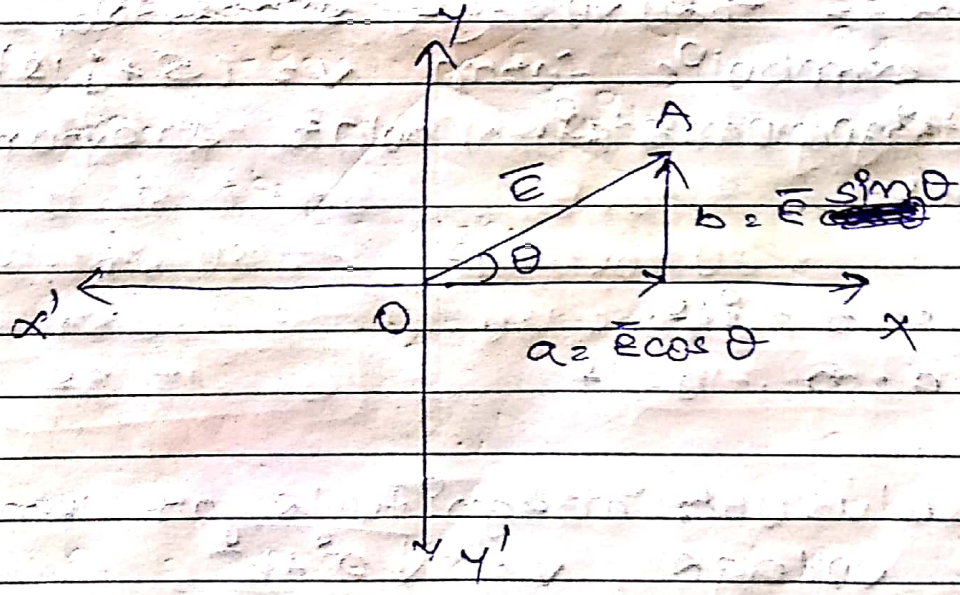 Y
A
E̅
b = E̅ sinθ
θ
X'
O
X
a = E̅ cos θ
Y'